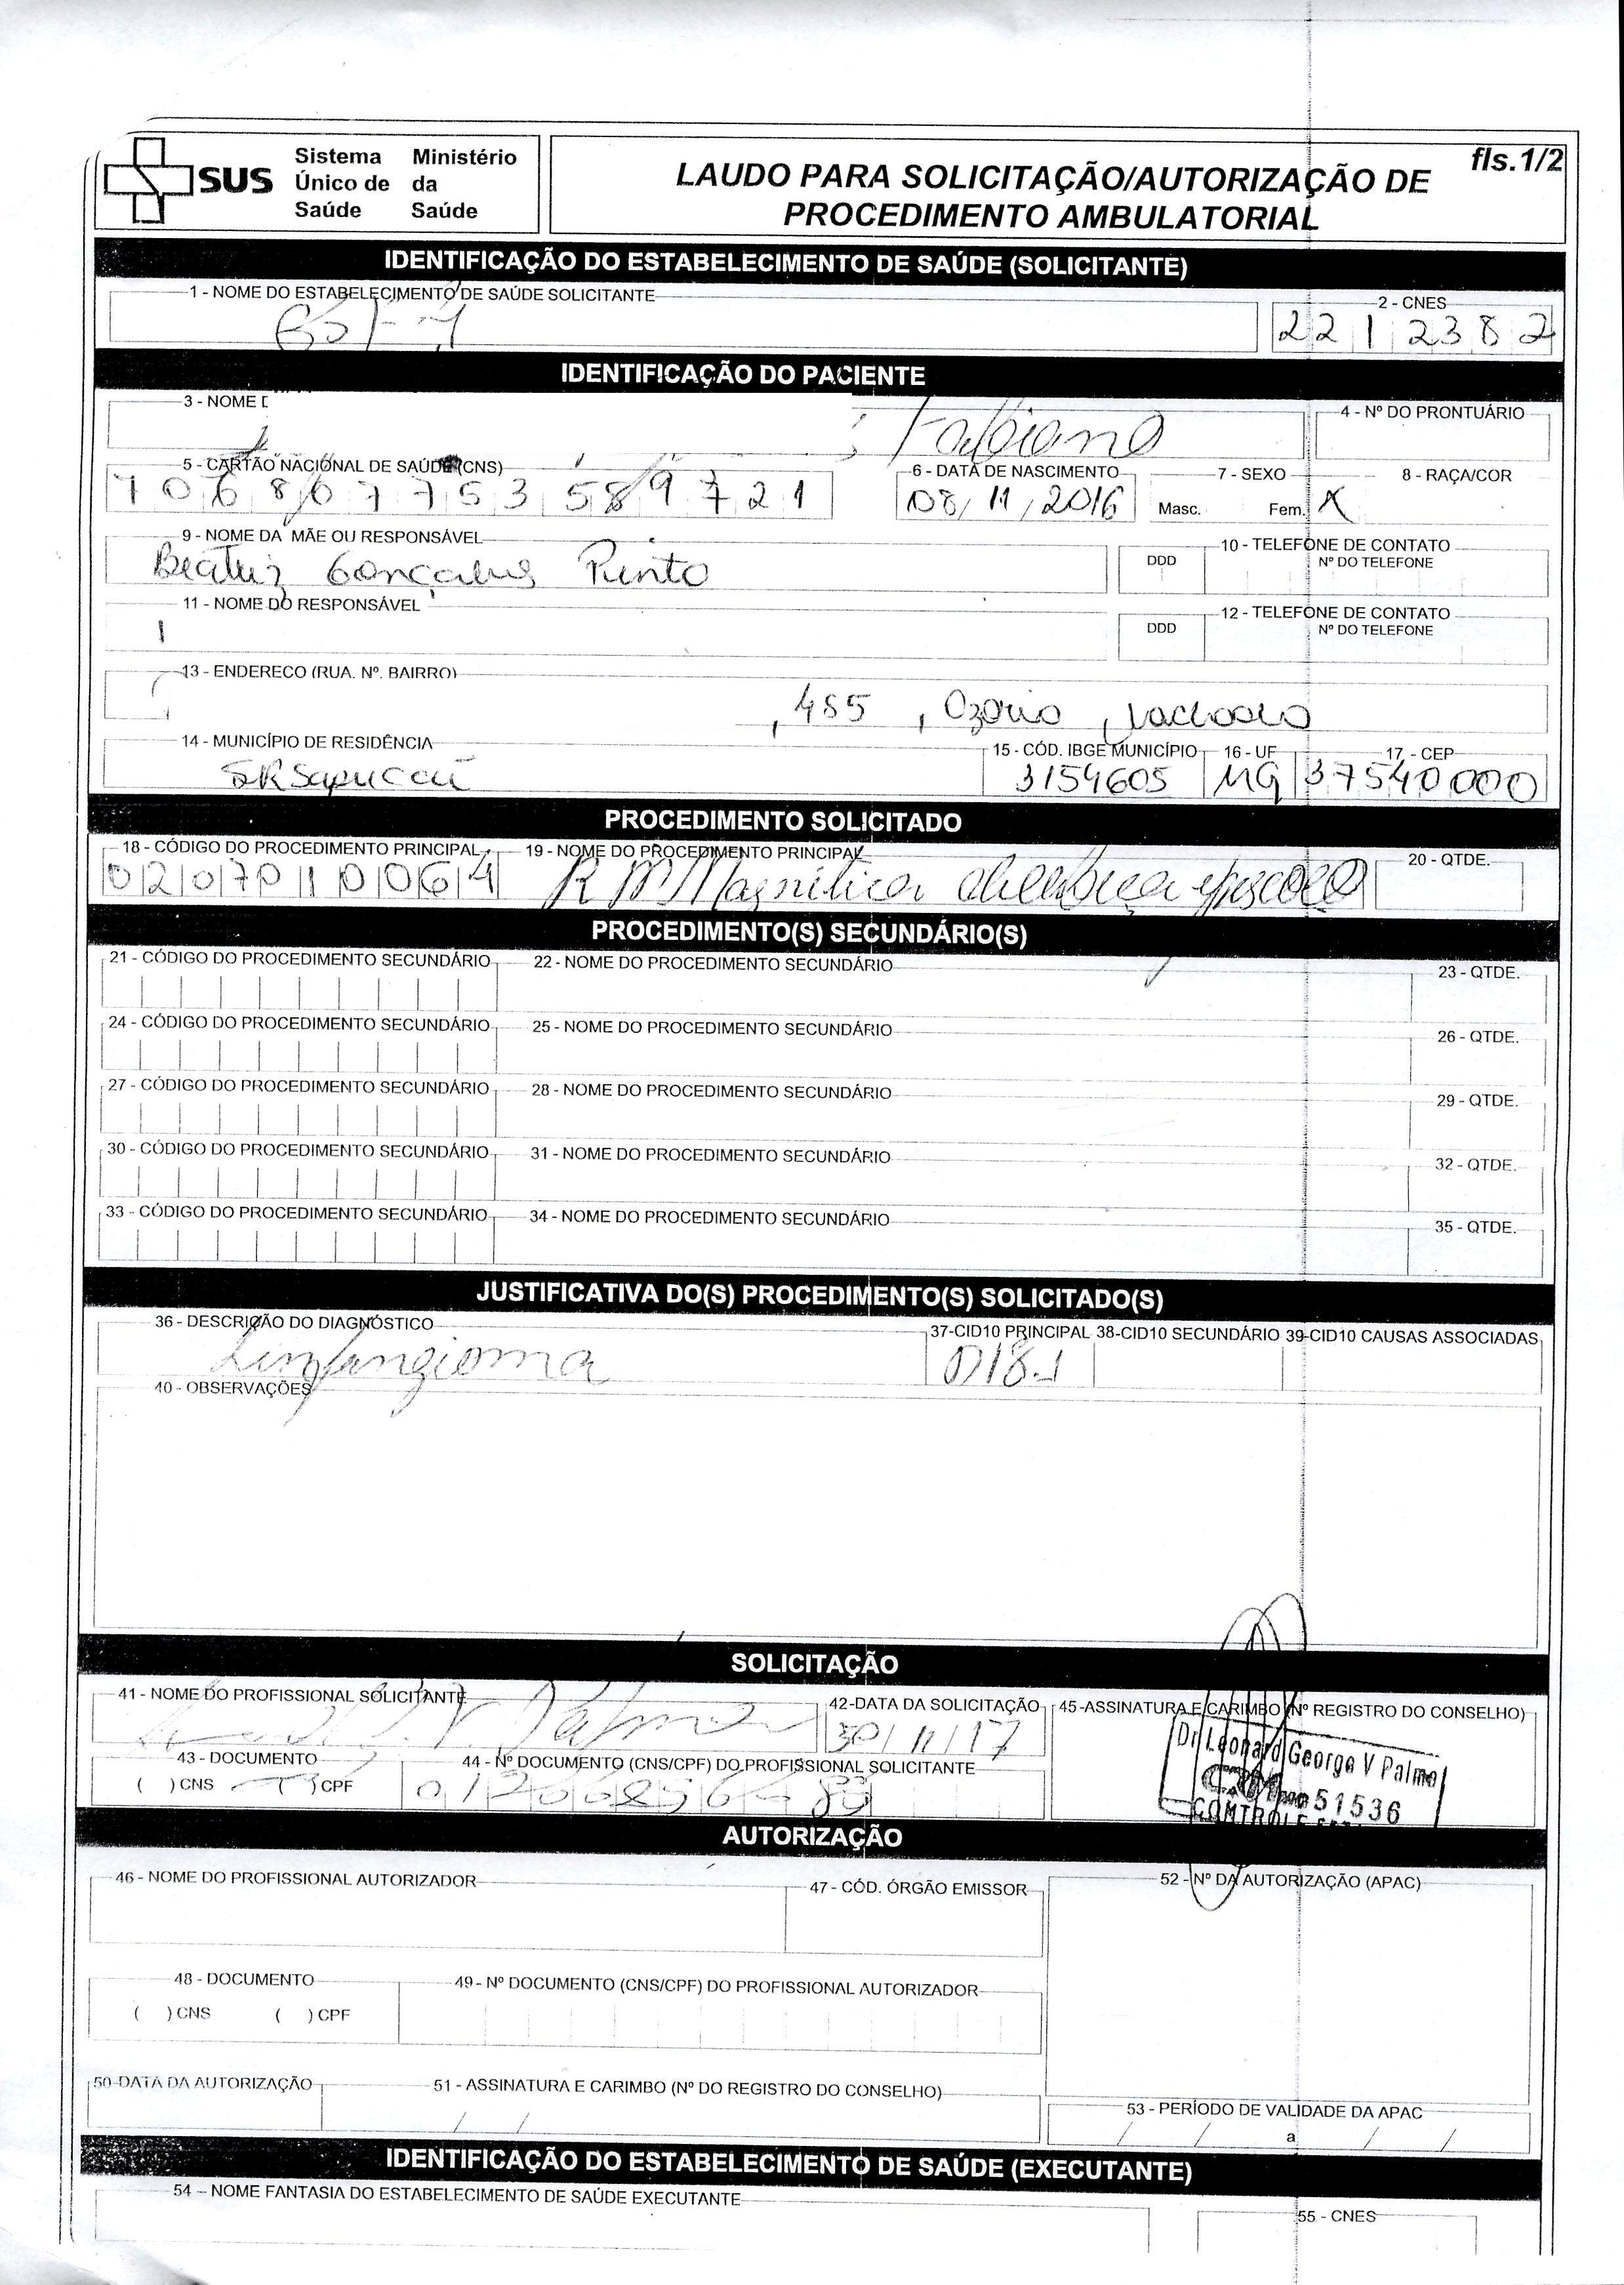 SUS Sistema Único de Saúde Ministério da Saúde
fls.1/2
LAUDO PARA SOLICITAÇÃO/AUTORIZAÇÃO DE
PROCEDIMENTO AMBULATORIAL
IDENTIFICAÇÃO DO ESTABELECIMENTO DE SAÚDE (SOLICITANTE)
1 - NOME DO ESTABELECIMENTO DE SAÚDE SOLICITANTE 2 - CNES
2212382
IDENTIFICAÇÃO DO PACIENTE
3 - NOME 4 - Nº DO PRONTUÁRIO
Fabiano
5 - CARTÃO NACIONAL DE SAÚDE (CNS) 6 - DATA DE NASCIMENTO 7 - SEXO 8 - RAÇA/COR
706807753589721 08/11/2016 Masc. Fem. X
9 - NOME DA MÃE OU RESPONSÁVEL 10 - TELEFONE DE CONTATO
Beatriz Gonçalves Pinto DDD Nº DO TELEFONE
11 - NOME DO RESPONSÁVEL 12 - TELEFONE DE CONTATO
DDD Nº DO TELEFONE
13 - ENDEREÇO (RUA, Nº, BAIRRO)
, 485 , Ozorio Machado
14 - MUNICÍPIO DE RESIDÊNCIA 15 - CÓD. IBGE MUNICÍPIO 16 - UF 17 - CEP
SRSapucaí 3159605 MG 37540000
PROCEDIMENTO SOLICITADO
18 - CÓDIGO DO PROCEDIMENTO PRINCIPAL 19 - NOME DO PROCEDIMENTO PRINCIPAL 20 - QTDE.
0207010064 R M Magnética de cabeça e pescoço
PROCEDIMENTO(S) SECUNDÁRIO(S)
21 - CÓDIGO DO PROCEDIMENTO SECUNDÁRIO 22 - NOME DO PROCEDIMENTO SECUNDÁRIO 23 - QTDE.
24 - CÓDIGO DO PROCEDIMENTO SECUNDÁRIO 25 - NOME DO PROCEDIMENTO SECUNDÁRIO 26 - QTDE.
27 - CÓDIGO DO PROCEDIMENTO SECUNDÁRIO 28 - NOME DO PROCEDIMENTO SECUNDÁRIO 29 - QTDE.
30 - CÓDIGO DO PROCEDIMENTO SECUNDÁRIO 31 - NOME DO PROCEDIMENTO SECUNDÁRIO 32 - QTDE.
33 - CÓDIGO DO PROCEDIMENTO SECUNDÁRIO 34 - NOME DO PROCEDIMENTO SECUNDÁRIO 35 - QTDE.
JUSTIFICATIVA DO(S) PROCEDIMENTO(S) SOLICITADO(S)
36 - DESCRIÇÃO DO DIAGNÓSTICO 37-CID10 PRINCIPAL 38-CID10 SECUNDÁRIO 39-CID10 CAUSAS ASSOCIADAS
Linfangioma D18.1
40 - OBSERVAÇÕES
SOLICITAÇÃO
41 - NOME DO PROFISSIONAL SOLICITANTE 42-DATA DA SOLICITAÇÃO 45-ASSINATURA E CARIMBO (Nº REGISTRO DO CONSELHO)
V. Palma 30/11/17
Dr Leonard George V Palma
51536
43 - DOCUMENTO 44 - Nº DOCUMENTO (CNS/CPF) DO PROFISSIONAL SOLICITANTE
( ) CNS ( ) CPF
AUTORIZAÇÃO
46 - NOME DO PROFISSIONAL AUTORIZADOR 47 - CÓD. ÓRGÃO EMISSOR 52 - Nº DA AUTORIZAÇÃO (APAC)
48 - DOCUMENTO 49 - Nº DOCUMENTO (CNS/CPF) DO PROFISSIONAL AUTORIZADOR
( ) CNS ( ) CPF
50-DATA DA AUTORIZAÇÃO 51 - ASSINATURA E CARIMBO (Nº DO REGISTRO DO CONSELHO)
/ /
53 - PERÍODO DE VALIDADE DA APAC
/ / a / /
IDENTIFICAÇÃO DO ESTABELECIMENTO DE SAÚDE (EXECUTANTE)
54 – NOME FANTASIA DO ESTABELECIMENTO DE SAÚDE EXECUTANTE 55 - CNES